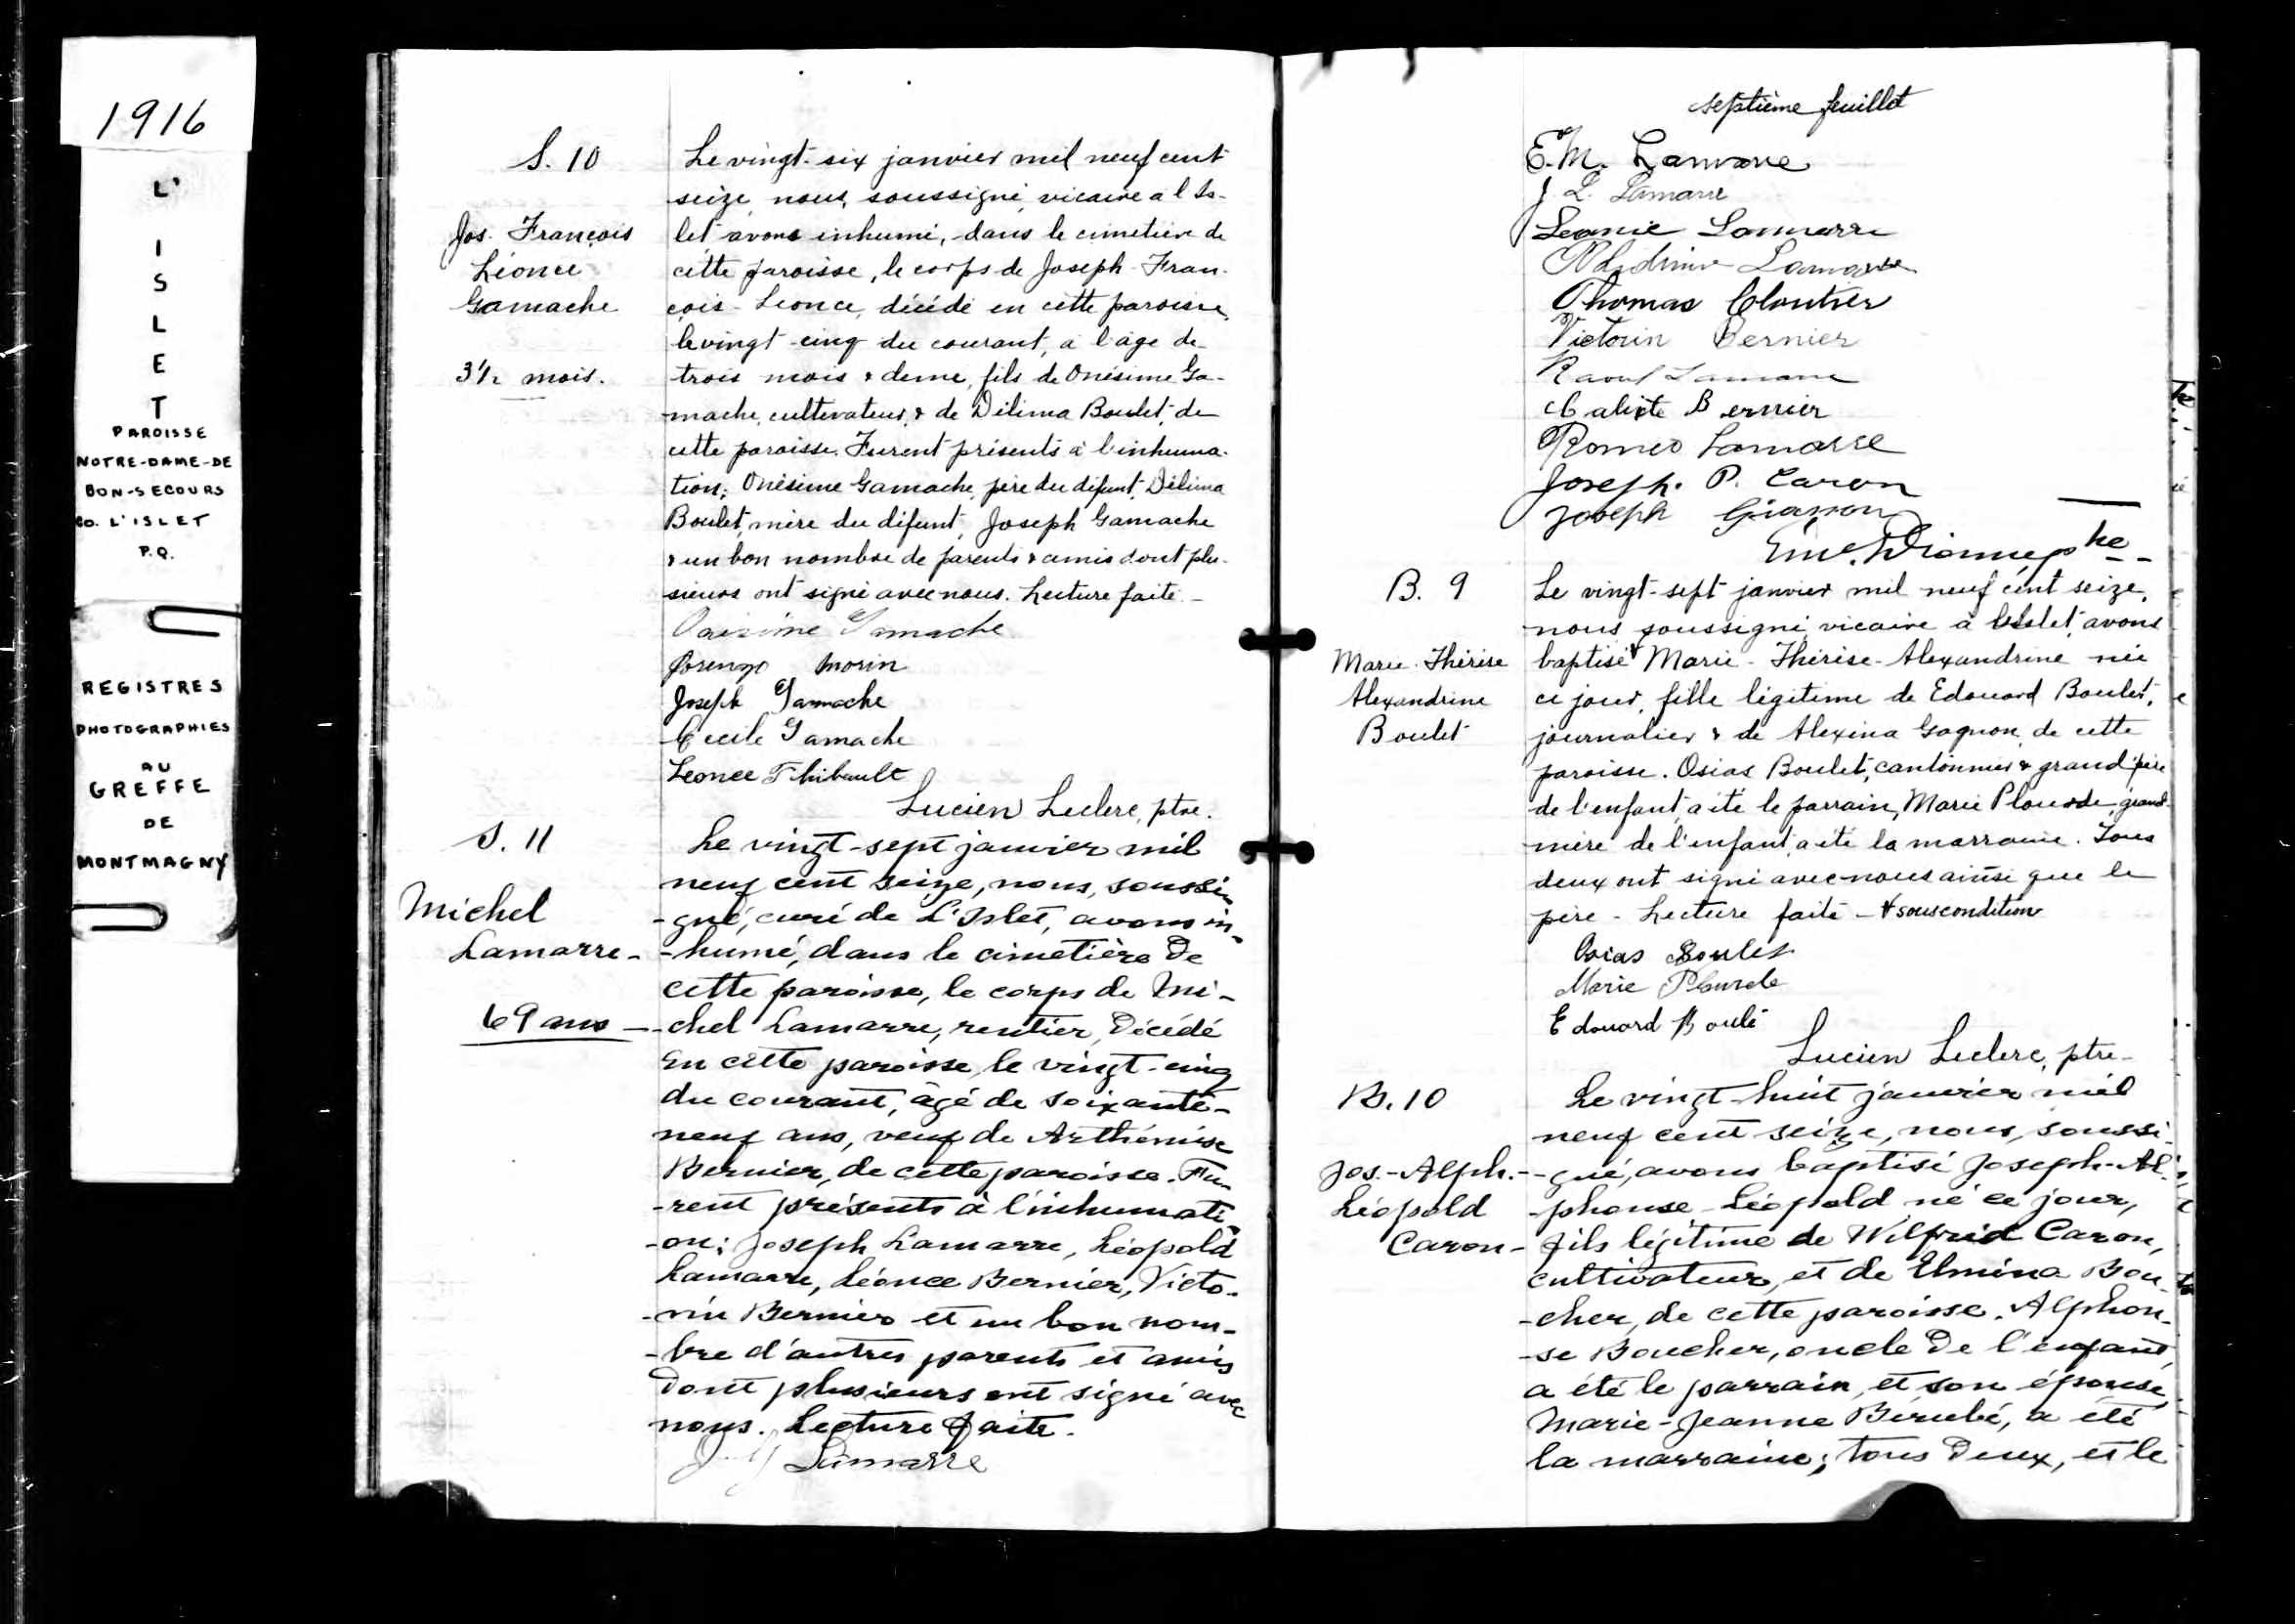 1916
L'
I
S
L
E
T
PAROISSE
NOTRE-DAME-DE
BON-SECOURS
CO. L'ISLET
P.Q.
REGISTRES
PHOTOGRAPHIES
AU
GREFFE
DE
MONTMAGNY
S. 10
Jos. François
Léonce
Gamache
3 1/2 mois.
Le vingt-six janvier mil neuf cent
seize, nous, soussigné, vicaire à l'Is-
let avons inhumé, dans le cimetière de
cette paroisse, le corps de Joseph-Fran-
çois-Léonce, décédé en cette paroisse,
le vingt-cinq du courant, à l'âge de
trois mois & demi, fils de Onésime Ga-
mache, cultivateur, & de Délima Boulet, de
cette paroisse. Furent présents à l'inhuma-
tion; Onésime Gamache, père du défunt, Délima
Boulet, mère du défunt, Joseph Gamache
& un bon nombre de parents & amis dont plu-
sieurs ont signé avec nous. Lecture faite.-
Onésime Gamache
Lorenzo Morin
Joseph Gamache
Cecile Gamache
Leonce Thibault
Lucien Leclerc, ptre.
S. 11
Michel
Lamarre-
69 ans-
Le vingt-sept janvier mil
neuf cent seize, nous, soussi-
-gné, curé de L'Islet, avons in-
-humé, dans le cimetière de
cette paroisse, le corps de Mi-
-chel Lamarre, rentier, décédé
en cette paroisse, le vingt-cinq
du courant, âgé de soixante-
neuf ans, veuf de Arthémise
Bernier, de cette paroisse. Fu-
-rent présents à l'inhumati-
-on: Joseph Lamarre, Léopold
Lamarre, Léonce Bernier, Victo-
-rin Bernier et un bon nom-
-bre d'autres parents et amis
dont plusieurs ont signé avec
nous. Lecture faite.
Lamarre
septième feuillet
E. M. Lamarre
J. L. Lamarre
Leonie Lamarre
Lamarre
Thomas Cloutier
Victorin Bernier
Raoul Lamarre
Calixte Bernier
Romeo Lamarre
Joseph. P. Caron
Joseph Giasson
Em. Dionne, ptre-
B. 9
Marie-Thérèse
Alexandrine
Boulet
Le vingt-sept janvier mil neuf cent seize,
nous soussigné, vicaire à L'Islet, avons
baptisé Marie-Thérèse-Alexandrine née
ce jour, fille légitime de Edouard Boulet,
journalier & de Alexina Gagnon, de cette
paroisse. Osias Boulet, cantonnier & grand'père
de l'enfant, a été le parrain, Marie Plourde, grand-
mère de l'enfant, a été la marraine. Tous
deux ont signé avec nous ainsi que le
père - Lecture faite - + sous condition
Osias Boulet
Marie Plourde
Edouard Boulé
Lucien Leclerc, ptre-
B. 10
Jos.-Alph.-
Léopold
Caron-
Le vingt-huit janvier mil
neuf cent seize, nous, soussi-
-gné, avons baptisé Joseph-Al-
-phonse-Léopold né ce jour,
fils légitime de Wilfrid Caron,
cultivateur, et de Elmina Bou-
-cher, de cette paroisse. Alphon-
-se Boucher, oncle de l'enfant,
a été le parrain, et son épouse,
Marie-Jeanne Bérubé, a été
la marraine; tous deux, et le